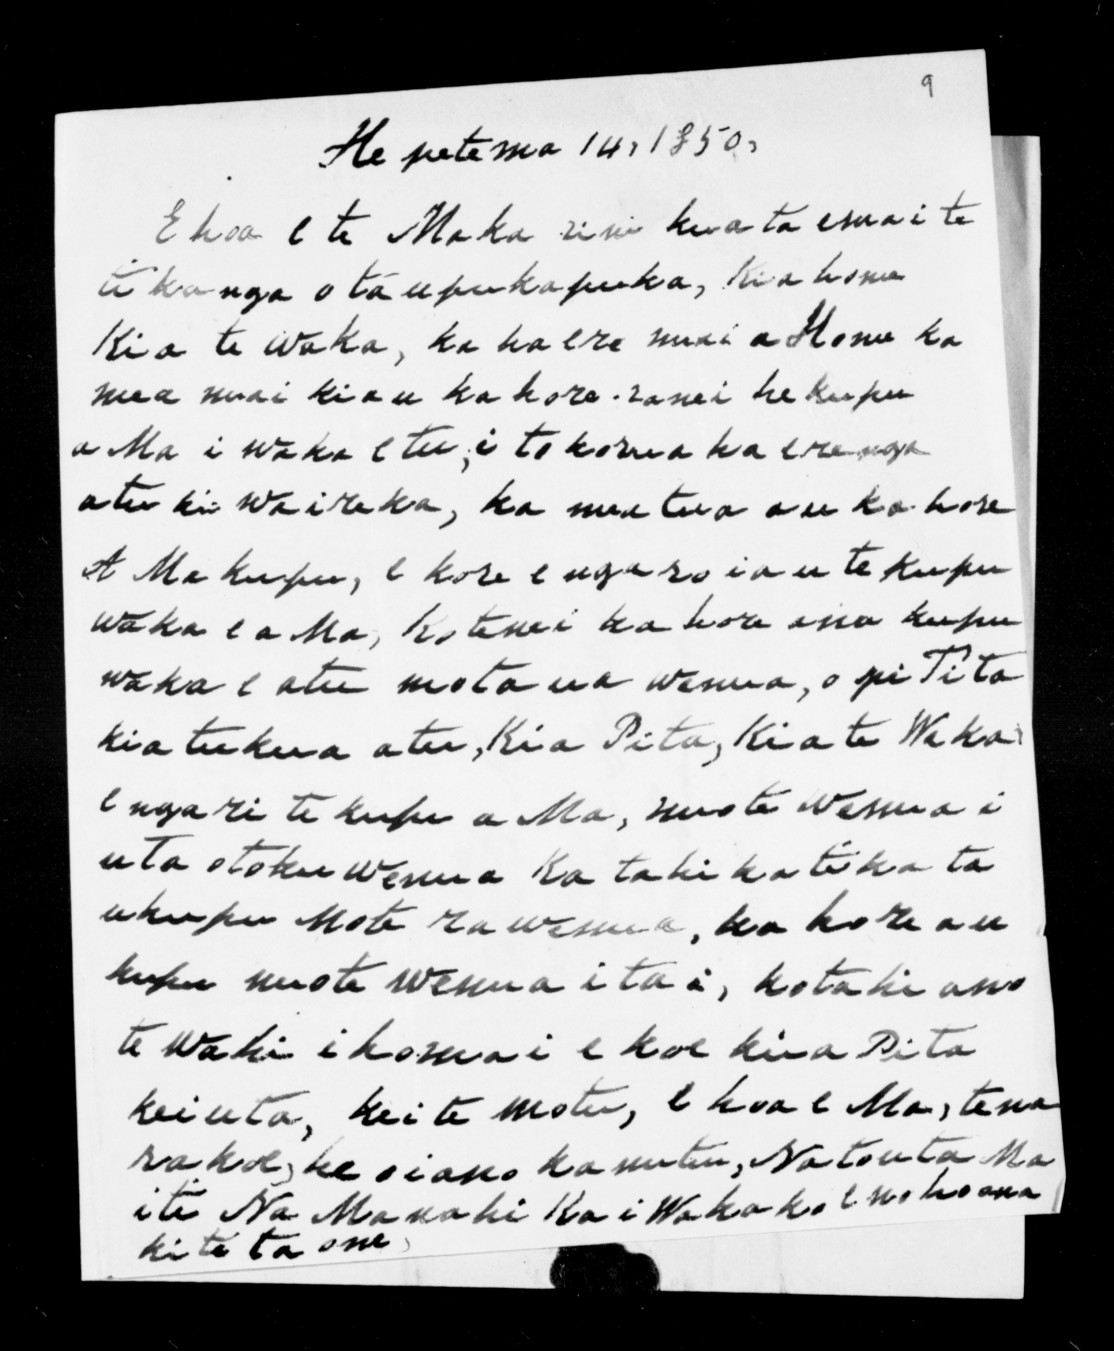 9
He petema 14, 1850,
E hoa e te Maka rini kua tae mai te
tikanga o tāu pukapuka, Kia honu
Kia te waka, ka haere mai a Honu ka
mea mai kiau kahore ranei he kupu
a Ma i waka etu, i to korua haerenga
atu ki Waireka, ka mea tua au kahore
A Ma kupu, e kore e ngaro i au te kupu
waka e a Ma, Kotenei kahore ana kupu
waka e atu mo taua wenua, o piTita
kia tukua atu, Kia Pita, Kia te Waka
engari te kupu a Ma, mote wenua i
uta otoku wenua Ka tahi ka tika ta
u kupu Mote ra wenua, ka hore au
kupu mote wenua i tai, kotahi ano
te wahi i homai e koe kia Pita
kei uta, kei te motu, E hoa e Ma, tena
ra koe, heoiano ka mutu, Na to uta Ma
iti Na Manahi Ka i Waka ko e noho ana
ki te taone,